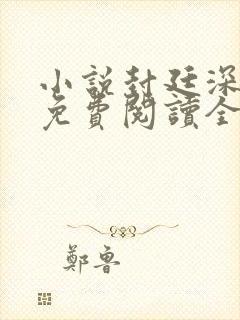 小說封廷深
免費閱讀全
鄭魯